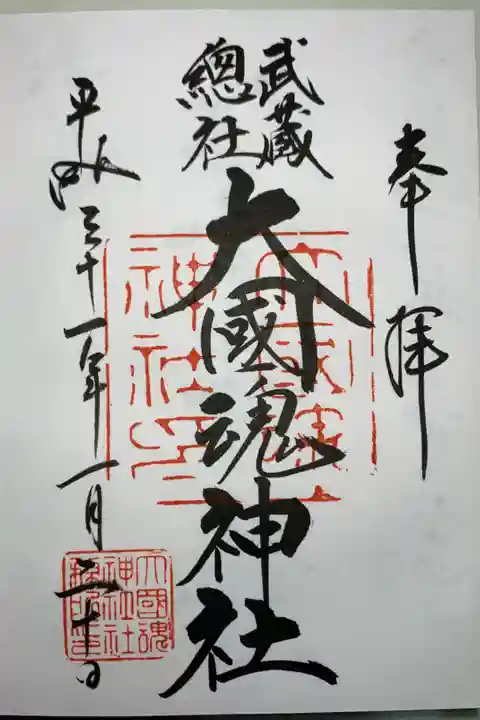 奉拝
武蔵
總社
大國魂神社
平成三十一年一月二十日
大國魂
神社社